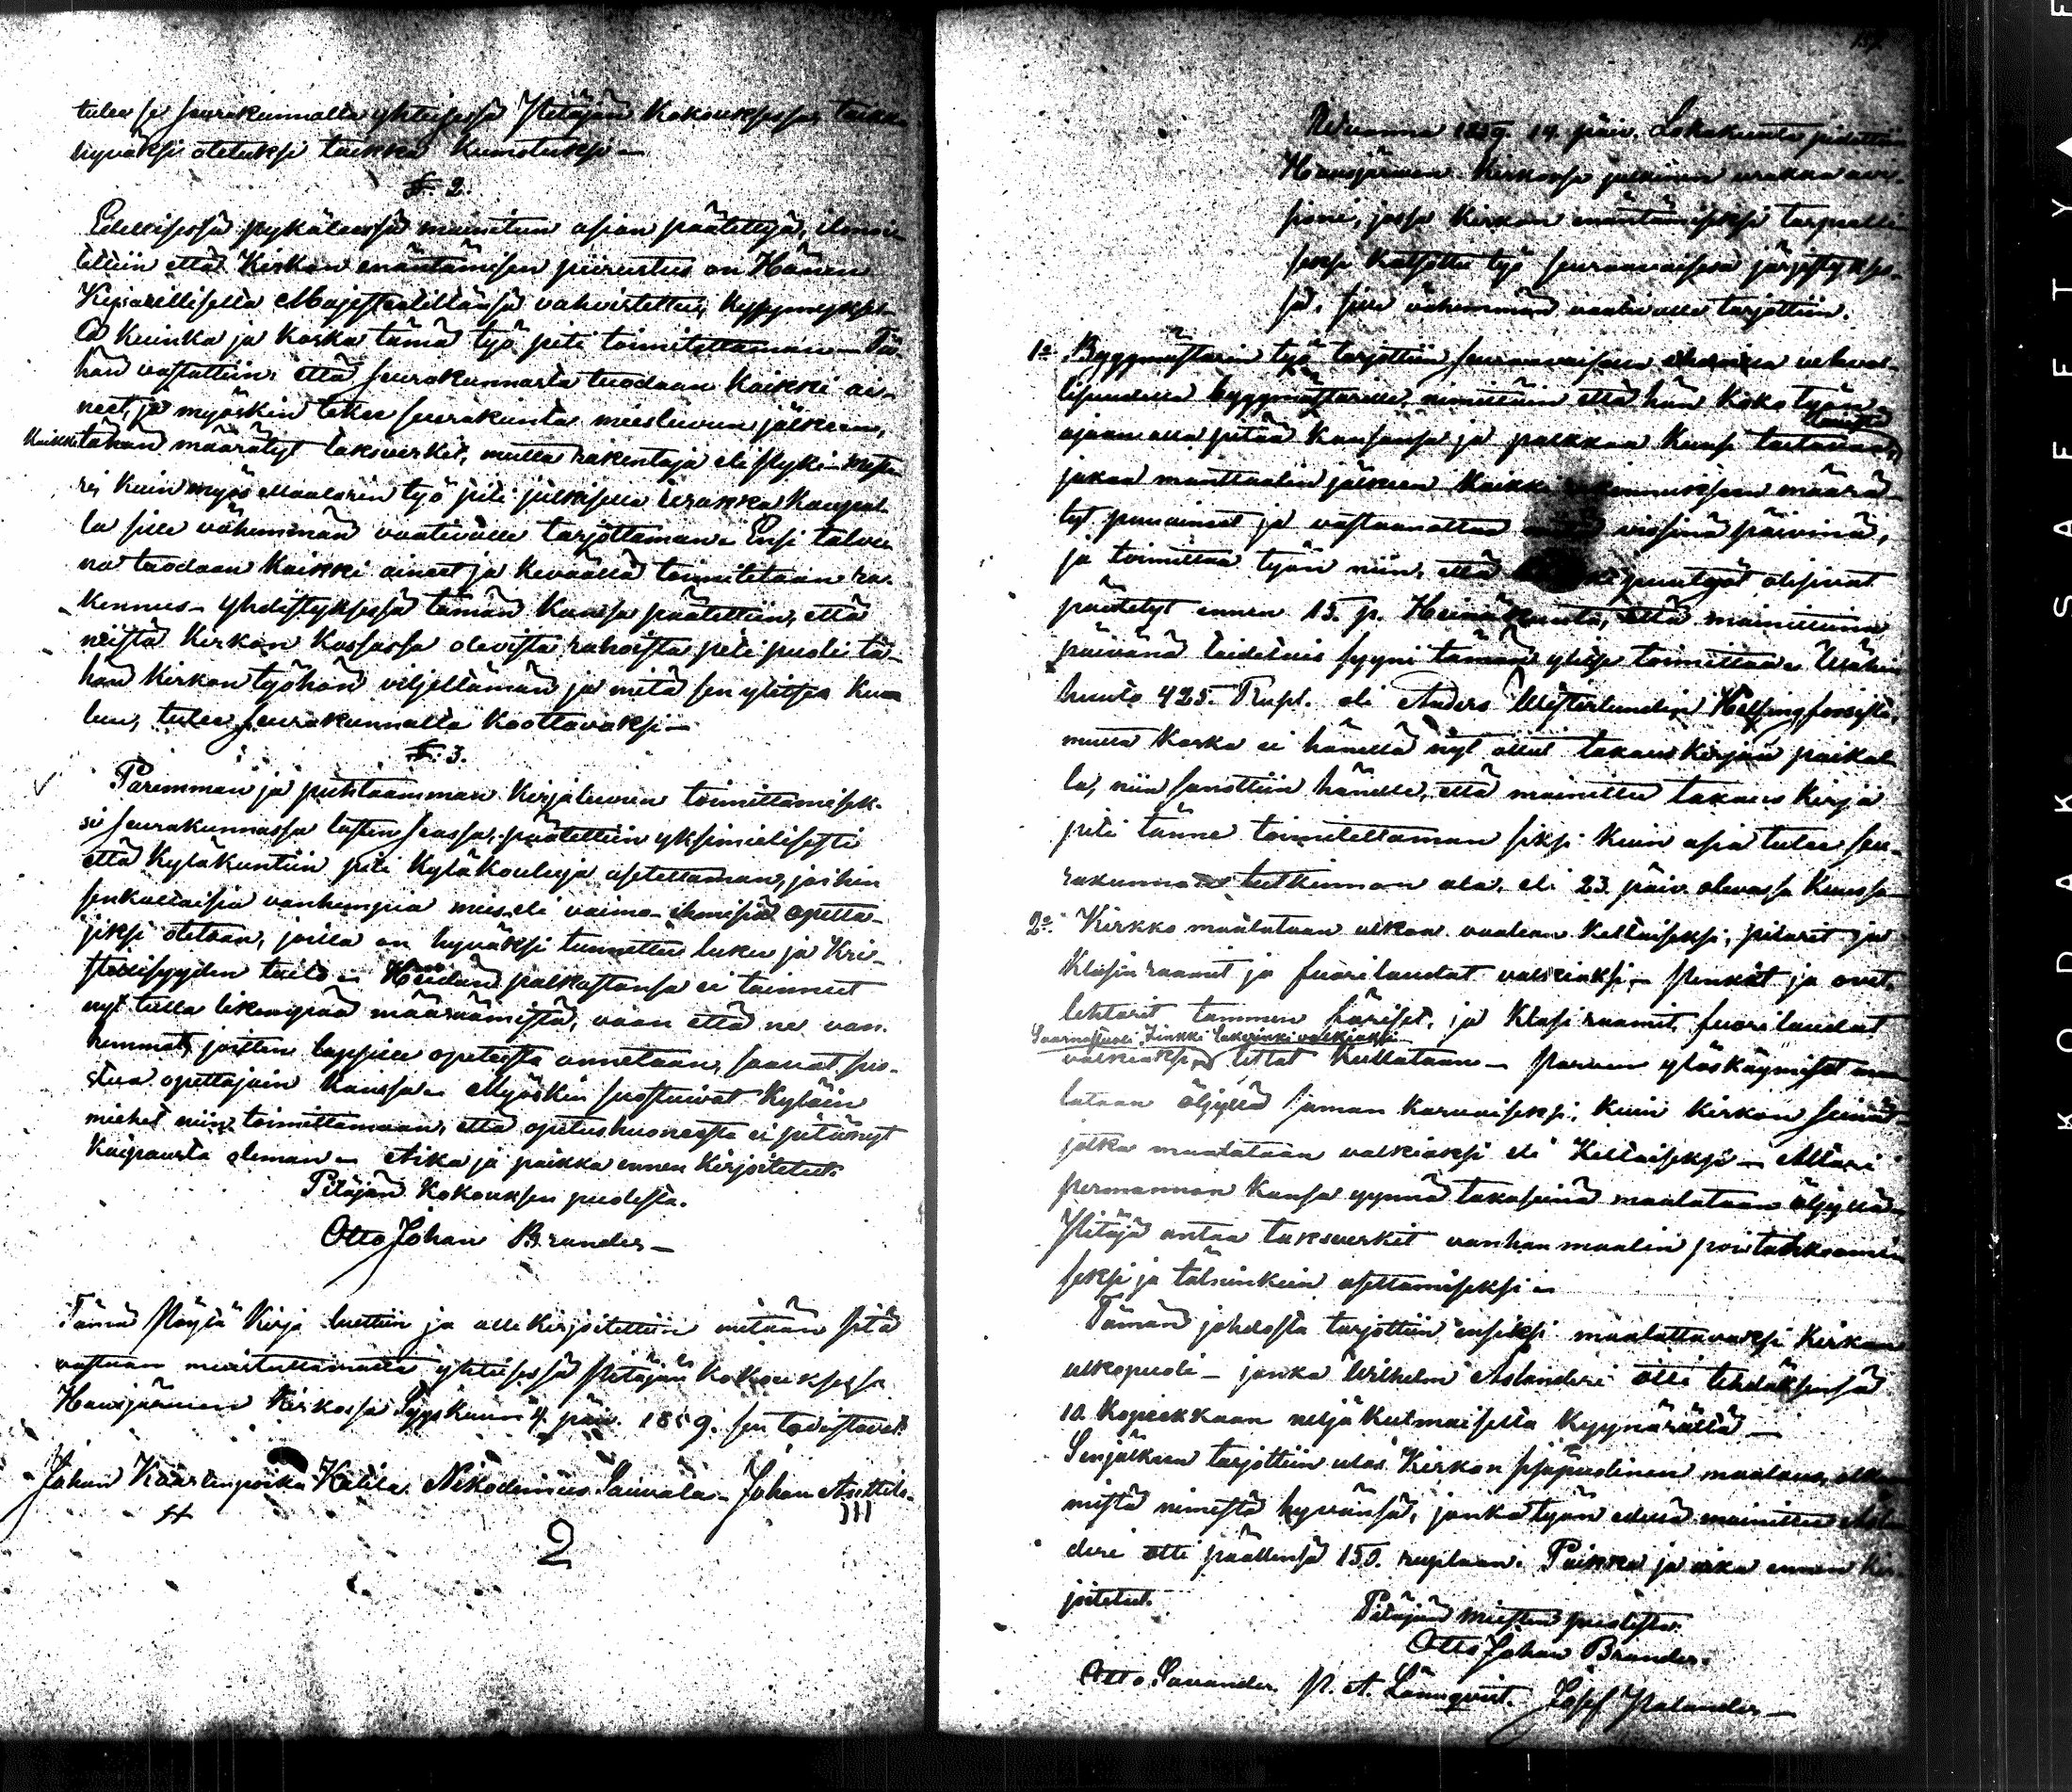 tulee se seurakunnalta yhteisessä Pitäjän Kokouksessa taikka
hyväksi otetuksi taikka kumotuksi —
§. 2.
Edellisessä pykälässä mainitun asian päätettyä, ilmoi-
tettiin että Kirkon enäntämisen piirustus on Hänen
Keisarilliselta Majesteetiltänsä vahvistettu, kysymykses-
sä kuinka ja koska tämä työ piti toimitettaman — Tä-
hän vastattiin: että seurakunnasta tuodaan kaikki ai-
neet, ja myöskin tekee seurakunta miesluvun jälkeen,
kaikki tähän määrätyt taksverkit, mutta rakentaja eli
ri, kuin myös Maalarin työ piti julkisella urakka kaupal-
la sille vähemmän vaativalle tarjottaman. Ensi talve-
na tuodaan kaikki aineet ja keväällä toimitetaan ra-
kennus — Yhdistyksessä tämän kanssa päätettiin, että
niistä Kirkon Kassassa olevista rahoista piti puoli tä-
hän Kirkon työhön viljeltämän ja mitä sen ylitse kuu-
luu, tulee seurakunnalta koottavaksi —
§. 3.
Paremman ja puhtaamman kirjaluvun toimittamisek-
si seurakunnassa lasten seassa, päätettiin yksimielisesti
että Kyläkuntiin piti Kyläkouluja asetettaman, joihin
senkaltaisia vanhempia mies eli vaimo-ihmisiä opetta-
jiksi otetaan, joilla on hyväksi tunnettu luku ja Kri-
stillisyyden taito — Heidän palkastansa ei tainneet
nyt tulla likempää määräämistä, vaan että ne van-
hemmat, joitten lapsille opetusta annetaan, saavat sus-
stua opettajain kanssa. Myöskin suostuivat Kyläin
miehet niin toimittamaan, että opetushuoneesta ei pitänyt
kaipausta oleman — Aika ja paikka ennen kirjoitetut.
Pitäjän Kokouksen puolesta.
Otto Johan Brander —
Tämä Pöytä Kirja luettiin ja alle kirjoitettiin mitään sitä
vastaan muistuttamatta yhteisessä Pitäjän kokouksessa
Hausjärven Kirkossa Syyskuun 4. päiv. 1859. sen todistavat
Johan Kaarlenpoika Kalila. Nikodemus Sauvala. Johan Anttila.
2
Vuonna 1859. 14. päiv. Lokakuuta pidettiin
Hausjärven Kirkossa julkinen urakka auk-
sioni, jossa Kirkon enäntämiseksi tarpeelli-
seksi katsottu työ seuraavaisessa järjestykses-
sä, sille vähemmän vaativalle tarjottiin.
1o. Byggmästarin työ tarjottiin seuraavaisena
lisuudella byggmästarille, nimittäin että hän koko työn
ajan alla pitää kanssansa ja palkkaa
jakaa manttaalin jälkeen kaikki rakennukseen määrä-
tyt puuaineet ja vastaanottaa vissinä päivinä,
ja toimittaa työn niin, että puutyöt olisivat
päätetyt ennen 15. p. Heinäkuuta, että mainittuna
päivänä taideltais syyni tämän ylitse toimittaa. Vähin
huuto 425. Rupl. oli Anders Westerlundin Helsingforsista,
mutta koska ei hänellä nyt ollut takauskirjaa paikal-
la, niin sanottiin hänelle, että mainittu takaus kirja
piti tänne toimitettaman siksi kuin asia tulee seu-
rakunnan tutkinnon ala, eli 23. päiv. olevassa kuussa
2o. Kirkko maalataan ulkoa vaalean keltaiseksi, pilarit ja
klasin raamit ja fuorilaudat valkiaksi — Penkit ja ovet,
lehtarit tammen väriset, ja klasi raamit, fuorilaudat
Saarnastuoli Zinkki valkiaksi
valkiaksi, listat kullataan — Parven ylöskäymiset maa-
lataan öljyllä saman karvaiseksi, kuin Kirkon seinät
jotka maalataan valkiaksi eli keltaiseksi — Altari
permannon kanssa ynnä takaseinä maalataan öljyllä —
Pitäjä antaa taksverkit vanhan maalin pois
seksi ja asettamiseksi —
Tämän johdosta tarjottiin ensiksi maalattavaksi Kirkon
ulkopuoli — jonka Wilhelm Aslanderi otti tehdäksensä
10 Kopeekkaan neljäkulmaiselta kyynärältä —
Senjälkeen tarjottiin ulos Kirkon sisäpuolinen maalaus,
mistä nimestä hyvänsä, jonka työn edellä mainittu Aslan-
deri otti päällensä 150. ruplaan. Paikka ja aika ennen kir-
joitetut.
Pitäjän miesten puolesta.
Otto Johan Brander.
Otto Savander. P. A. Lönnqvist. Josef Palander —
KODAK SAFETY